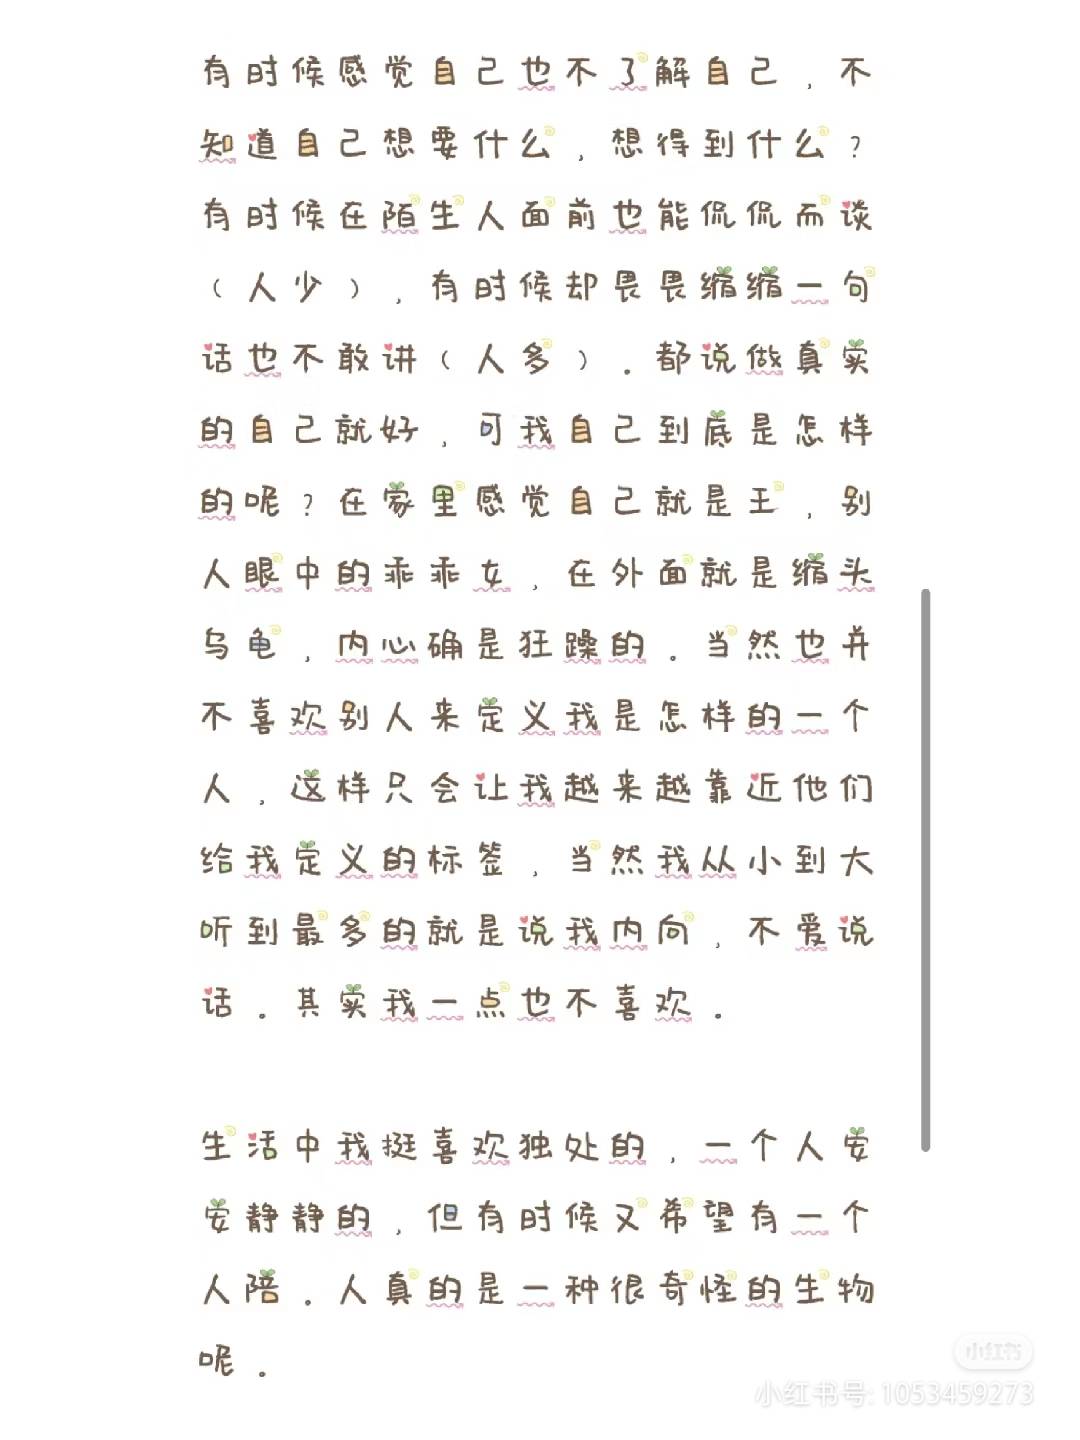 有时候感觉自己也不了解自己，不
知道自己想要什么，想得到什么？
有时候在陌生人面前也能侃侃而谈
（人少），有时候却畏畏缩缩一句
话也不敢讲（人多）．都说做真实
的自己就好，可我自己到底是怎样
的呢？在家里感觉自己就是王，别
人眼中的乖乖女，在外面就是缩头
乌龟，内心确是狂躁的。当然也并
不喜欢别人来定义我是怎样的一个
人，这样只会让我越来越靠近他们
给我定义的标签，当然我从小到大
听到最多的就是说我内向，不爱说
话。其实我一点也不喜欢。
生活中我挺喜欢独处的，一个人安
安静静的，但有时候又希望有一个
人陪．人真的是一种很奇怪的生物
呢。
小红书
小红书号: 1053459273